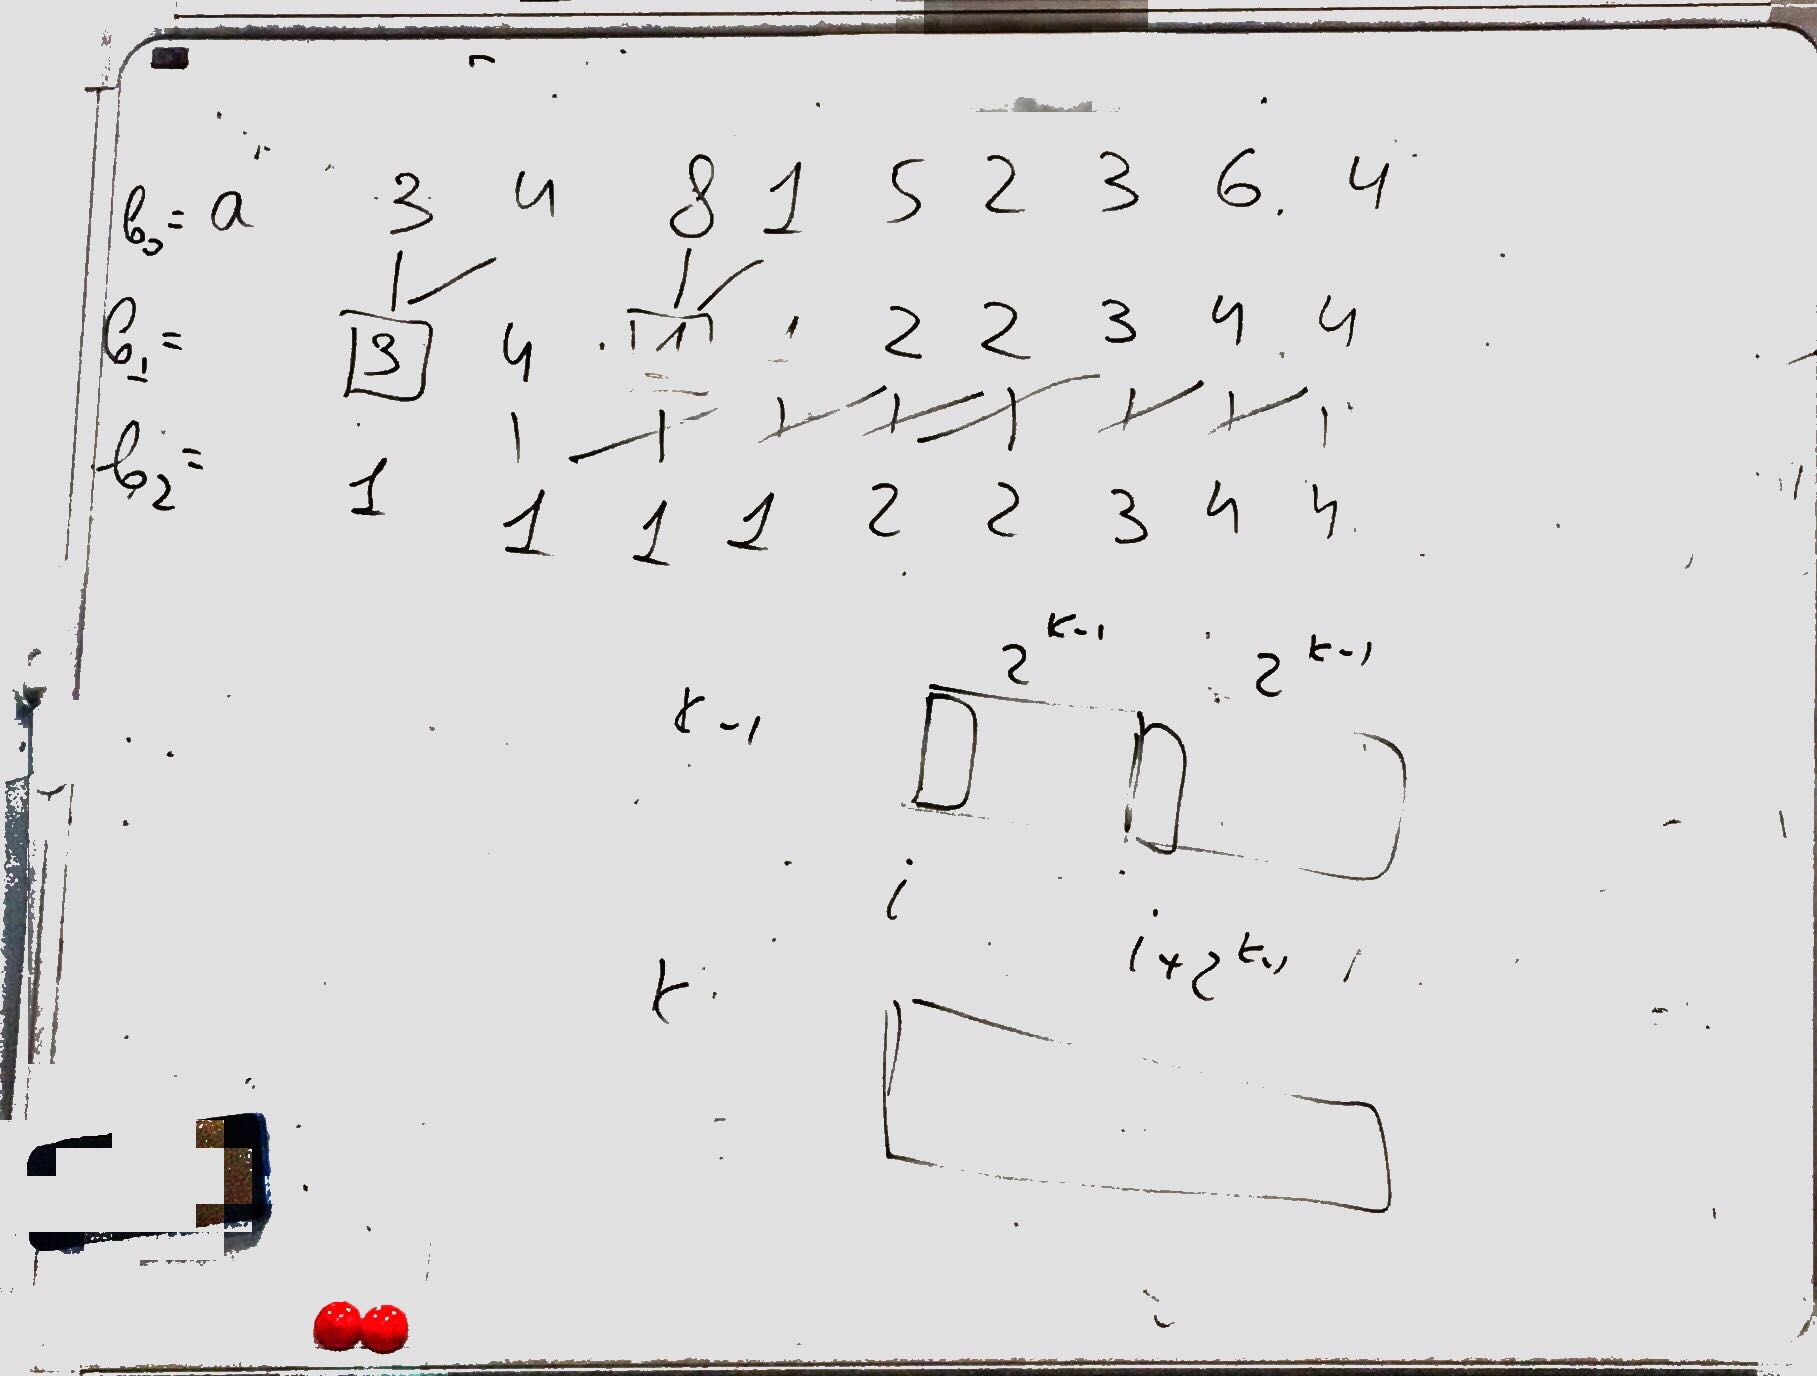 b₀ = a 3 4 8 1 5 2 3 6 4
b₁ = 3 4 1 1 2 2 3 4 4
b₂ = 1 1 1 1 2 2 3 4 4
2^{k-1} 2^{k-1}
k-1
i i+2^{k-1}
k